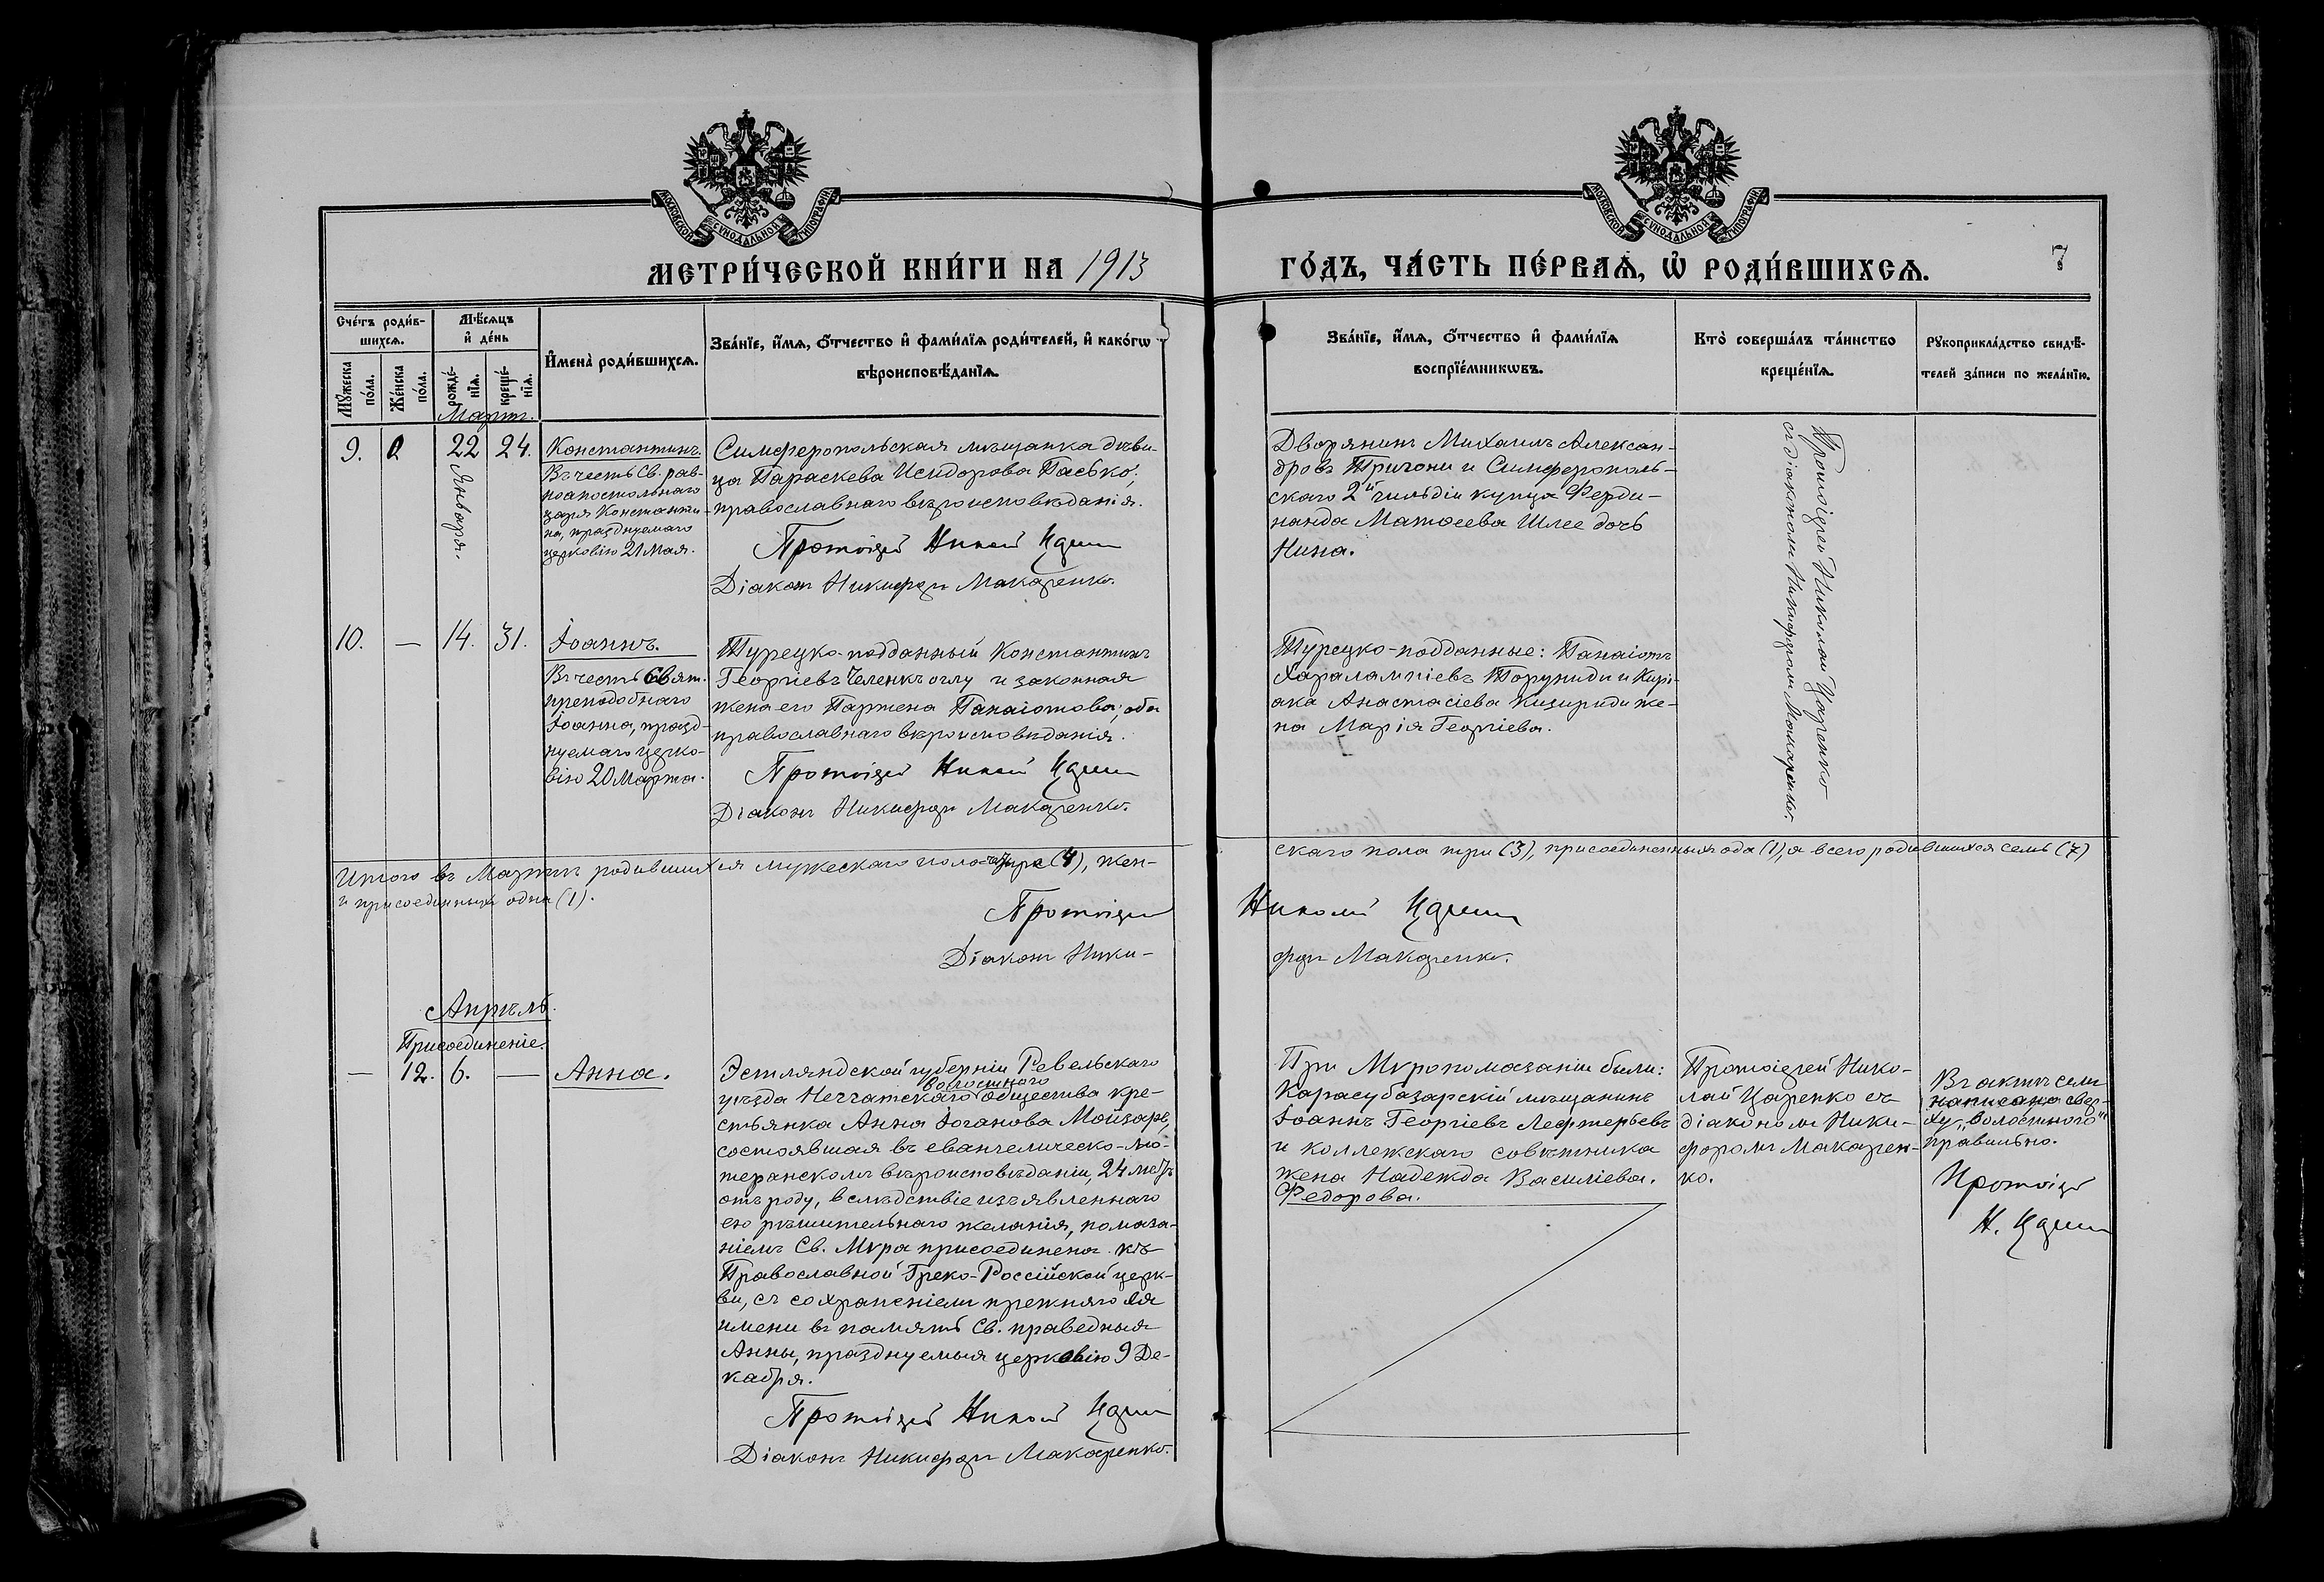 МОСКОВСКОЙ СѴНОДАЛЬНОЙ ТИПОГРАФІИ
МОСКОВСКОЙ СѴНОДАЛЬНОЙ ТИПОГРАФІИ
МЕТРИ́ЧЕСКОЙ КНИ́ГИ НА 1913
ГО́ДЪ, ЧА́СТЬ ПЕ́РВАѦ, Ѽ РОДИ́ВШИХСѦ.
7
Счéтъ роди́в-
шихсѧ.
Мꙋ́жеска
по́ла.
Же́нска
по́ла.
Мѣ́сѧцъ
и҆ де́нь
рожде́-
нїѧ.
креще́-
нїѧ.
И҆мена̀ роди́вшихсѧ.
Зва́нїе, и҆́мѧ, ѻ҆́тчество и҆ фами́лїѧ роди́телей, и҆ како́гѡ
вѣроисповѣ́данїѧ.
Зва́нїе, и҆́мѧ, ѻ҆́тчество и҆ фами́лїѧ
воспрїе́мникѡвъ.
Кто̀ соверша́лъ та́инство
креще́нїѧ.
Рꙋкоприкла́дство свидѣ́-
телей за́писи по жела́нїю.
Мартъ.
9.
22
24.
Января.
Константинъ.
Въ честь Св. рав-
ноапостольнаго
царя Константи-
на, празднуемаго
церковію 21 Мая.
Симферопольская мѣщанка дѣви-
ца Параскева Исидорова Пасько;
православнаго вѣроисповѣданія.
Протоіерей Николай Царенко
Діаконъ Никифоръ Макаренко.
Дворянинъ Михаилъ Алексан-
дровъ Тригони и Симферополь-
скаго 2й гильдіи купца Ферди-
нанда Матѳеева Шлее дочь
Нина.
Протоіерей Николай Царенко
съ діакономъ Никифоромъ Макаренко.
10.
—
14.
31.
Іоаннъ.
Въ честь Свят.
преподобнаго
Іоанна, празд-
нуемаго церко-
вію 20 Марта.
Турецко-подданный Константинъ
Георгіевъ Челенкъ оглу и законная
жена его Партена Панаіотова; оба
православнаго вѣроисповѣданія.
Протоіерей Николай Царенко
Діаконъ Никифоръ Макаренко.
Турецко-подданные: Панаіотъ
Харалампіевъ Торупиди и Кирі-
ака Анастасіева Кизириди же-
на Марія Георгіева.
Итого въ Мартѣ родившихся мужескаго пола четыре (4), жен-
скаго пола три (3), присоединенныхъ одна (1), а всего родившихся семь (7)
и присоединенныхъ одна (1).
Протоіерей Николай Царенко
Діаконъ Ники-
форъ Макаренко.
Апрѣль.
Присоединеніе.
—
12.
6.
—
Анна.
Эстляндской губерніи Ревельскаго
волостного
уѣзда общества кре-
стьянка Анна Іоганова Мойзаръ,
состоявшая въ евангелическо-лю-
теранскомъ вѣроисповѣданіи, 24 лѣтъ
отъ роду, вслѣдствіе изъявленнаго
ею рѣшительнаго желанія, помаза-
ніемъ Св. Мѵра присоединена къ
Православной Греко-Россійской церк-
ви, съ сохраненіемъ прежняго ея
имени въ память Св. праведныя
Анны, празднуемыя церковію 9 Де-
кабря.
Протоіерей Николай Царенко
Діаконъ Никифоръ Макаренко.
При Мѵропомазаніи были:
Карасубазарскій мѣщанинъ
Іоаннъ Георгіевъ Лефтерьевъ
и коллежскаго совѣтника
жена Надежда Василіева.
Федорова.
Протоіерей Нико-
лай Царенко съ
діакономъ Ники-
форомъ Макарен-
ко.
Въ актѣ семъ
написано свер-
ху „волостного"
правильно.
Протоіерей
Н. Царенко